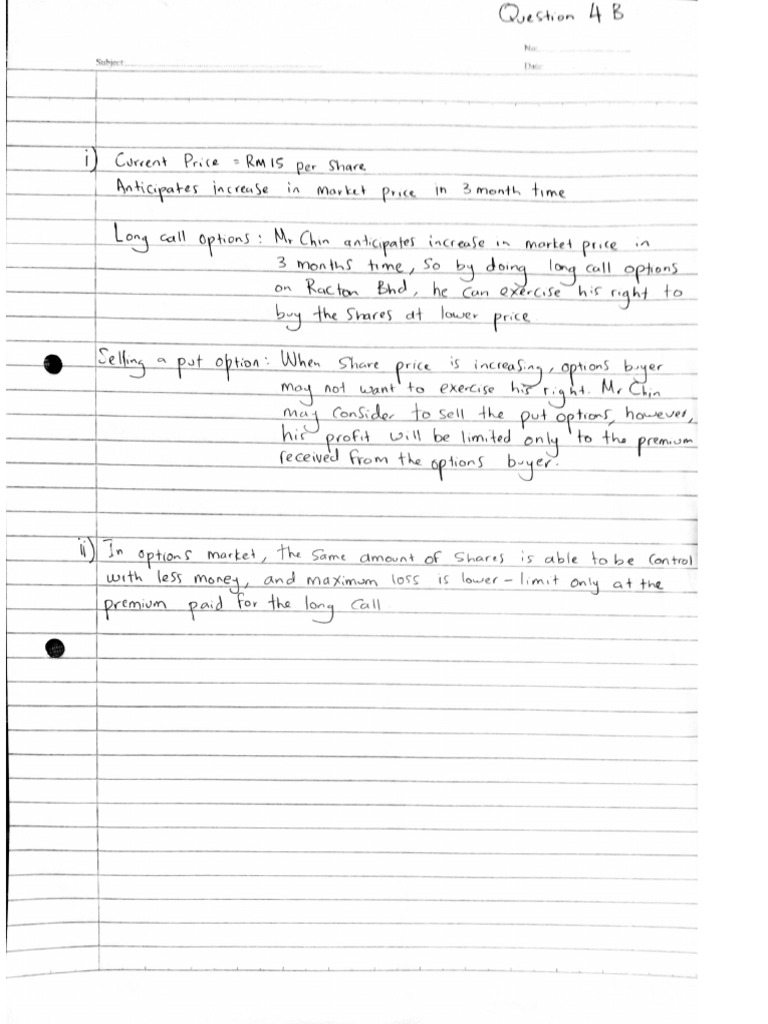 Question 4 B
No:
Subject
Date:
i) Current Price = RM15 per share
Anticipates increase in market price in 3 month time
Long call options: Mr Chin anticipates increase in market price in
3 months time, so by doing long call options
on Racton Bhd, he can exercise his right to
buy the shares at lower price
Selling a put option: When share price is increasing, options buyer
may not want to exercise his right. Mr Chin
may consider to sell the put options, however,
his profit will be limited only to the premium
received from the options buyer.
ii) In options market, the same amount of shares is able to be control
with less money, and maximum loss is lower - limit only at the
premium paid for the long call